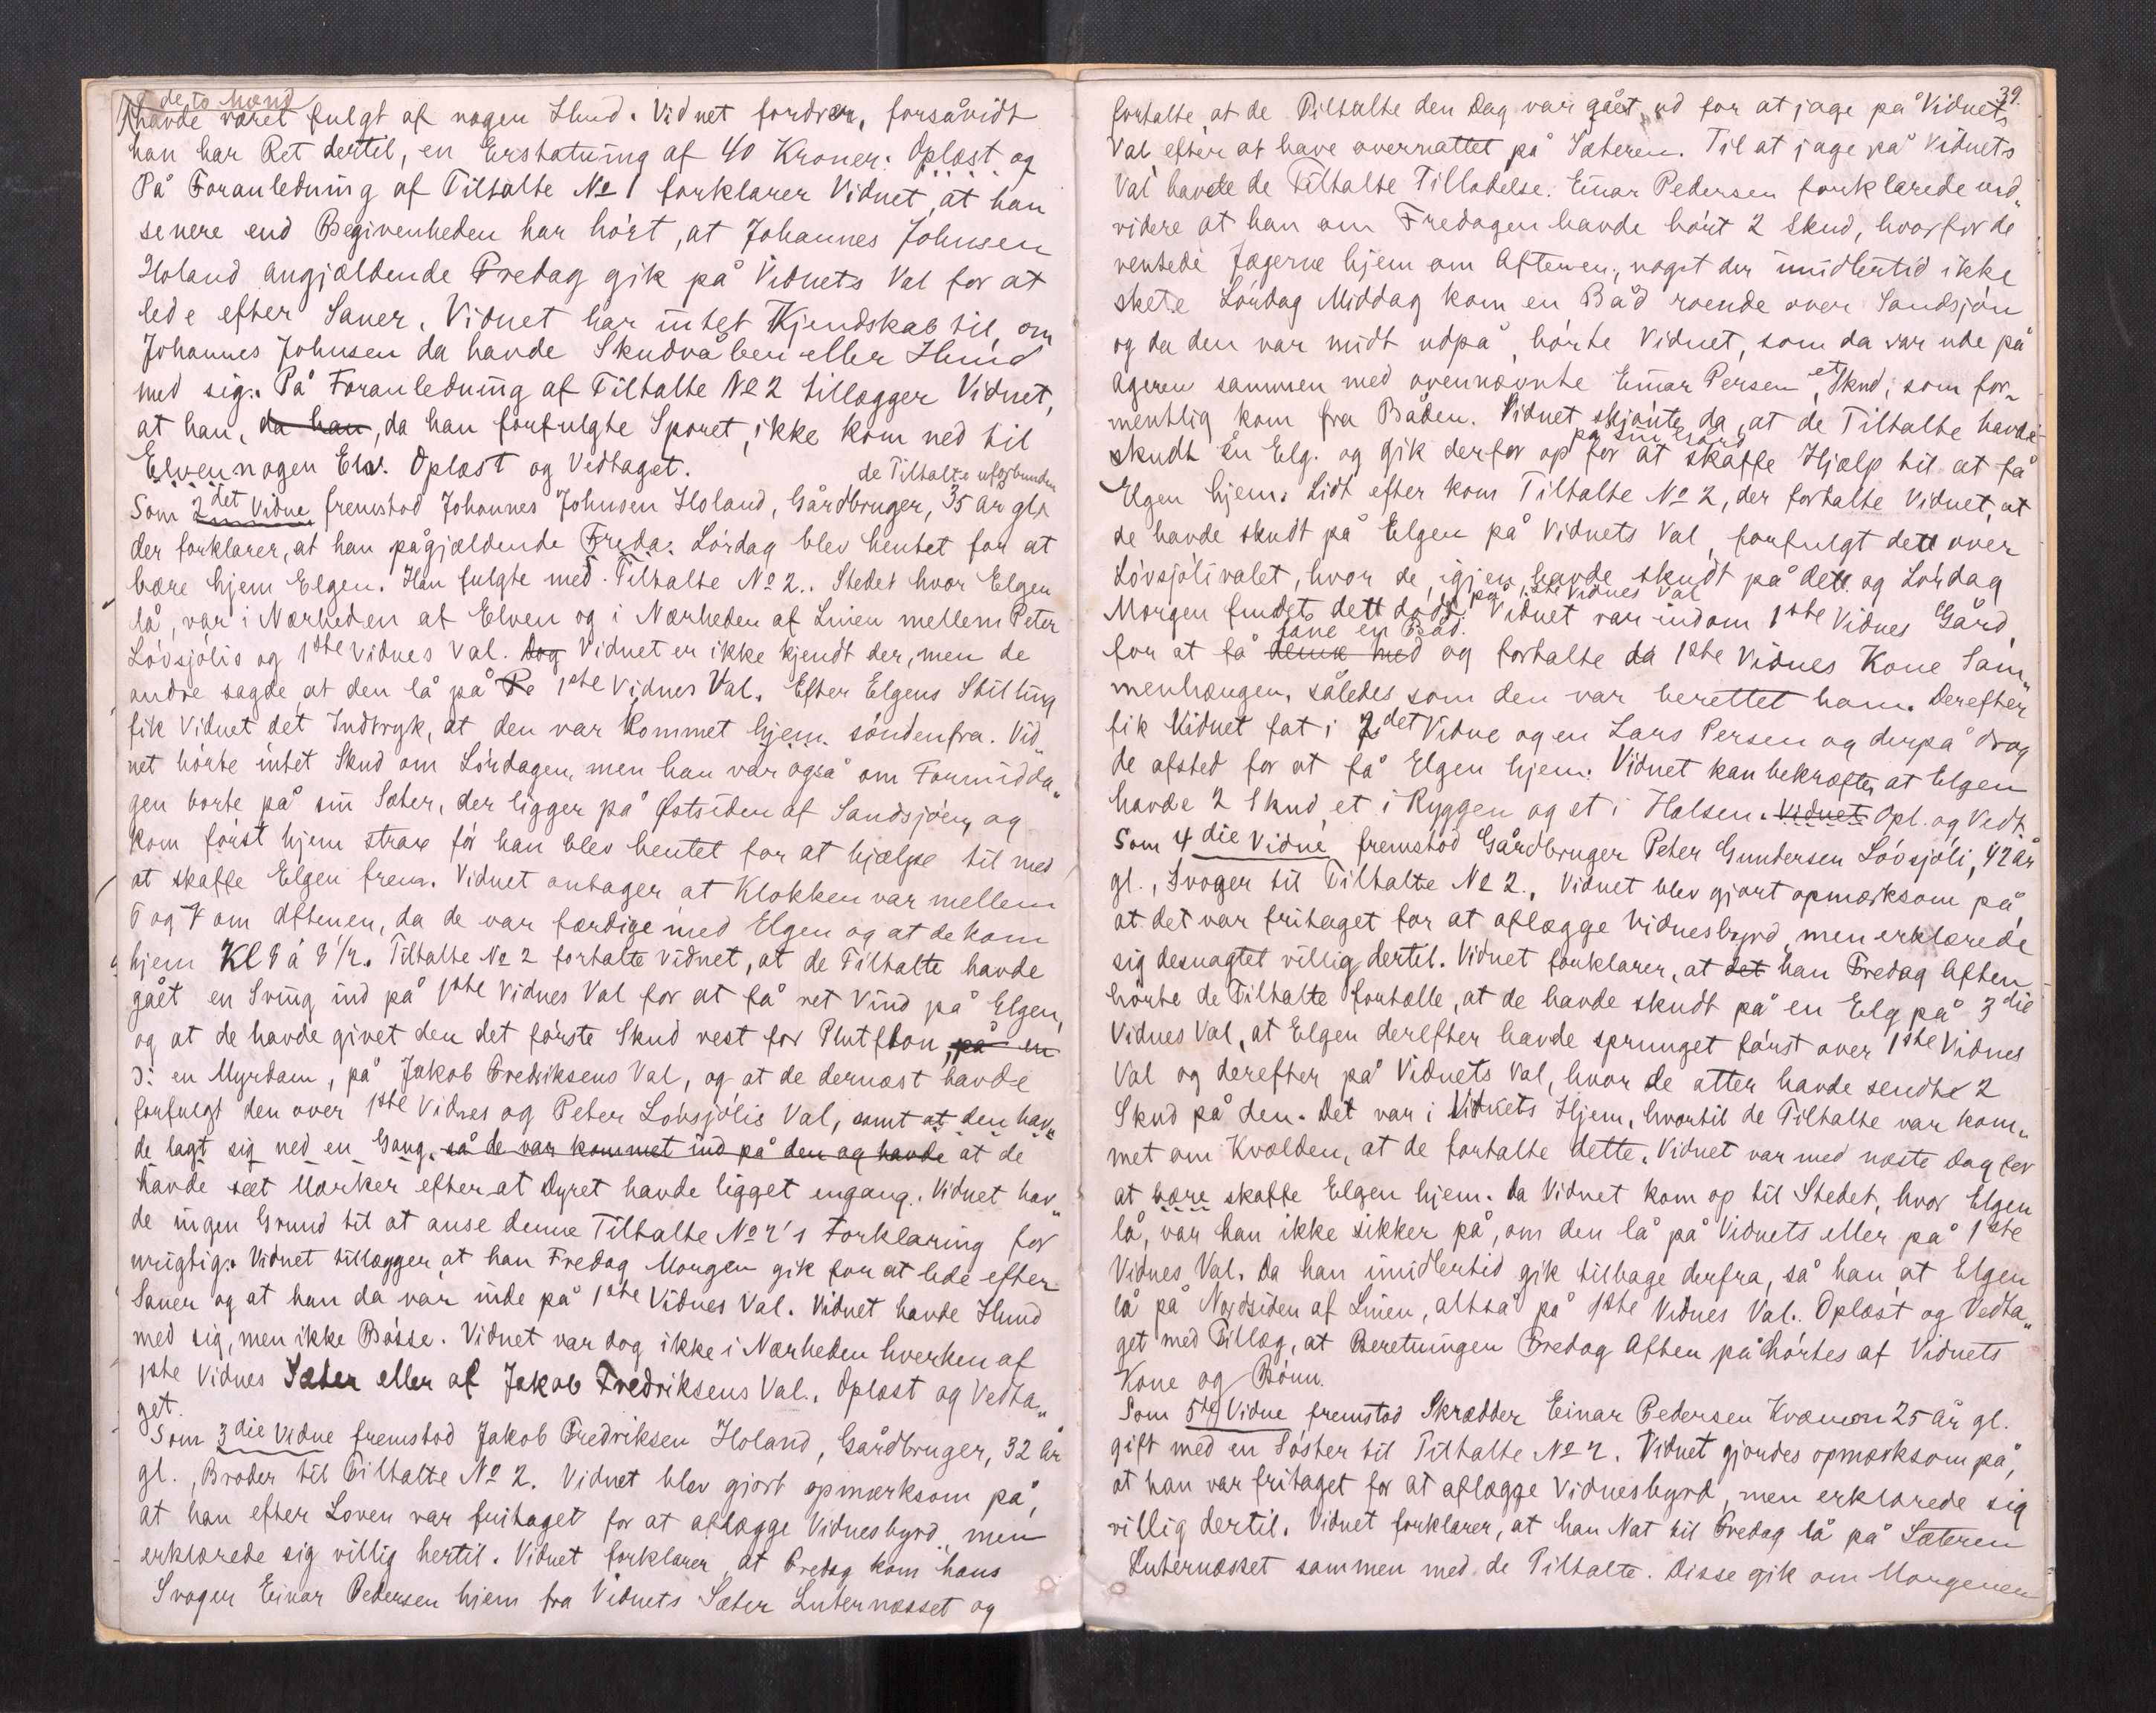 de to Mænd
havde været fulgt af nogen Hund. Vidnet fordrer, forsåvidt
han har Ret dertil, en Erstatning af 40 Kroner. Oplæst og
På Foranledning af Tiltalte No 1 forklarer Vidnet, at han
senere end Begivenheden har hørt, at Johannes Johnsen
Holand angjældende Fredag gik på Vidnets Val for at
lede efter Sauer. Vidnet har intet Kjendskab til, om
Johannes Johnsen da havde Skudvåben eller Hund
med sig. På Foranledning af Tiltalte No 2 tillægger Vidnet,
at han, da han, da han forfulgte Sporet, ikke kom ned til
Elven nogen Elv. Oplæst og Vedtaget.
de Tiltalte uforbunden
Som 2det Vidne fremstod Johannes Johnsen Holand, Gårdbruger, 35 år gl.
der forklarer, at han pågjældende Freda. Lørdag blev hentet for at
bære hjem Elgen. Han fulgte med Tiltalte No 2. Stedet hvor Elgen
lå, var i Nærheden af Elven og i Nærheden af Linien mellem Peter
Løvsjølis og 1ste Vidnes Val. Dog Vidnet er ikke kjendt der, men de
andre sagde, at den lå på Pe 1ste Vidnes Val. Efter Elgens Stilling
fik Vidnet det Indtryk, at den var kommet hjem søndenfra. Vid„
net hørte intet Skud om Lørdagen, men han var også om Formidda„
gen borte på sin Sæter, der ligger på Østsiden af Sandsjøen, og
kom først hjem strax før han blev hentet for at hjælpe til med
at skaffe Elgen frem. Vidnet antager at Klokken var mellem
6 og 7 om Aftenen, da de var færdige med Elgen og at de kom
hjem Kl 8 à 8 1/2. Tiltalte No 2 fortalte Vidnet, at de Tiltalte havde
gået en Sving ind på 1ste Vidnes Val for at få ret Vind på Elgen,
og at de havde givet den det første Skud vest for Plutften, på en
ɔ: en Myrdam, på Jakob Fredriksens Val, og at de dernæst havde
forfulgt den over 1ste Vidnes og Peter Løvsjølis Val, samt at den hav„
de lagt sig ned en Gang, så de var kommet ind på den og havde at de
havde sæt Mærker efter at Dyret havde ligget engang. Vidnet hav„
de ingen Grund til at anse denne Tiltalte No 2's Forklaring for
urigtig. Vidnet tillægger, at han Fredag Morgen gik for at lede efter
Sauer og at han da var inde på 1ste Vidnes Val. Vidnet havde Hund
med sig, men ikke Bøsse. Vidnet var dog ikke i Nærheden hverken af
1ste Vidnes Sæter eller af Jakob Fredriksens Val. Oplæst og Vedta„
get.
Som 3die Vidne fremstod Jakob Fredriksen Holand, Gårdbruger, 32 år
gl., Broder til Tiltalte No 2. Vidnet blev gjort opmærksom på,
at han efter Loven var fritaget for at aflægge Vidnesbyrd, men
erklærede sig villig hertil. Vidnet forklarer, at Fredag kom hans
Svoger Einar Pedersen hjem fra Vidnets Sæter Luternæsset og
39.
fortalte, at de Tiltalte den Dag var gået ud for at jage på Vidnets
Val efter at have overnattet på Sæteren. Til at jage på Vidnets
Val havde de Tiltalte Tilladelse. Einar Pedersen forklarede vid„
videre at han om Fredagen havde hørt 2 Skud, hvorfor de
ventede Jægerne hjem om Aftenen, noget der imidlertid ikke
skete. Lørdag Middag kom en Båd roende over Sandsjøn
og da den var midt udpå, hørte Vidnet, som da var ude på
ageren sammen med ovennævnte Einar Persen, et Skud, som for„
mentlig kom fra Båden. Vidnet skjønte da, at de Tiltalte havde
på sin Gård
skudt en Elg, og gik derfor op for at skaffe Hjælp til at få
Elgen hjem. Lidt efter kom Tiltalte No 2, der fortalte Vidnet, at
de havde skudt på Elgen på Vidnets Val, forfulgt dett over
Løvsjølivalet, hvor de igjen havde skudt på dett og Lørdag
på 1ste Vidnes Val
Morgen fundet dett dødt. Vidnet var indom 1ste Vidnes Gård,
låne en Båd.
for at få denne med og fortalte da 1ste Vidnes Kone Sam„
menhængen, således som den var berettet ham. Derefter
fik Vidnet fat i 2det Vidne og en Lars Persen og derpå drog
de afsted for at få Elgen hjem. Vidnet kan bekræfte, at Elgen
havde 2 Skud, et i Ryggen og et i Halsen. Vidnet Opl. og Vedt.
Som 4die Vidne fremstod Gårdbruger Peter Gundersen Løvsjøli, 42 år
gl., Svoger til Tiltalte No 2. Vidnet blev gjort opmærksom på,
at det var fritaget for at aflægge Vidnesbyrd, men erklærede
sig desuagtet villig dertil. Vidnet forklarer, at det han Fredag Aften
hørte de Tiltalte fortælle, at de havde skudt på en Elg på 3die
Vidnes Val, at Elgen derefter havde sprunget først over 1ste Vidnes
Val og derefter på Vidnets Val, hvor de atter havde sendt 2
Skud på den. Det var i Vidnets Hjem, hvortil de Tiltalte var kom„
met om Kvælden, at de fortalte dette. Vidnet var med næste Dag for
at bære skaffe Elgen hjem. Da Vidnet kom op til Stedet, hvor Elgen
lå, var han ikke sikker på, om den lå på Vidnets eller på 1ste
Vidnes Val. Da han imidlertid gik tilbage derfra, så han, at Elgen
lå på Nordsiden af Linien, altså på 1ste Vidnes Val. Oplæst og Vedta„
get med Tillæg, at Beretningen Fredag Aften påhørtes af Vidnets
Kone og Børn.
Som 5te Vidne fremstod Skrædder Einar Pedersen Kvæmon 25 år gl.
gift med en Søster til Tiltalte No 2. Vidnet gjordes opmærksom på,
at han var fritaget for at aflægge Vidnesbyrd, men erklærede sig
villig dertil. Vidnet forklarer, at han Nat til Fredag lå på Sæteren
Luternæsset sammen med de Tiltalte. Disse gik om Morgenen